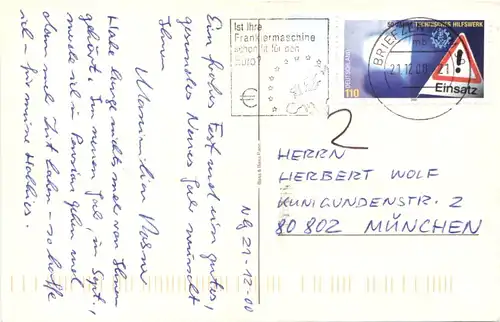 Nbg 21-12-00
Ein frohes Fest und ein gutes,
gesundes Neues Jahr wünscht
Ihnen
Maximilian
Habe lange nichts mehr von Ihnen
gehört. Im neuen Jahr, im Sept.,
werde ich in Pension gehen und
dann mehr Zeit haben - so hoffe
ich - für meine Hobbies.
Ist Ihre
Frankiermaschine
schon fit für den
Euro?
50 JAHRE TECHNISCHES HILFSWERK
DEUTSCHLAND
110
Einsatz
BRIEFZENTRUM
21.12.00-21
HERRN
HERBERT WOLF
KUNIGUNDENSTR. 2
80 802 MÜNCHEN